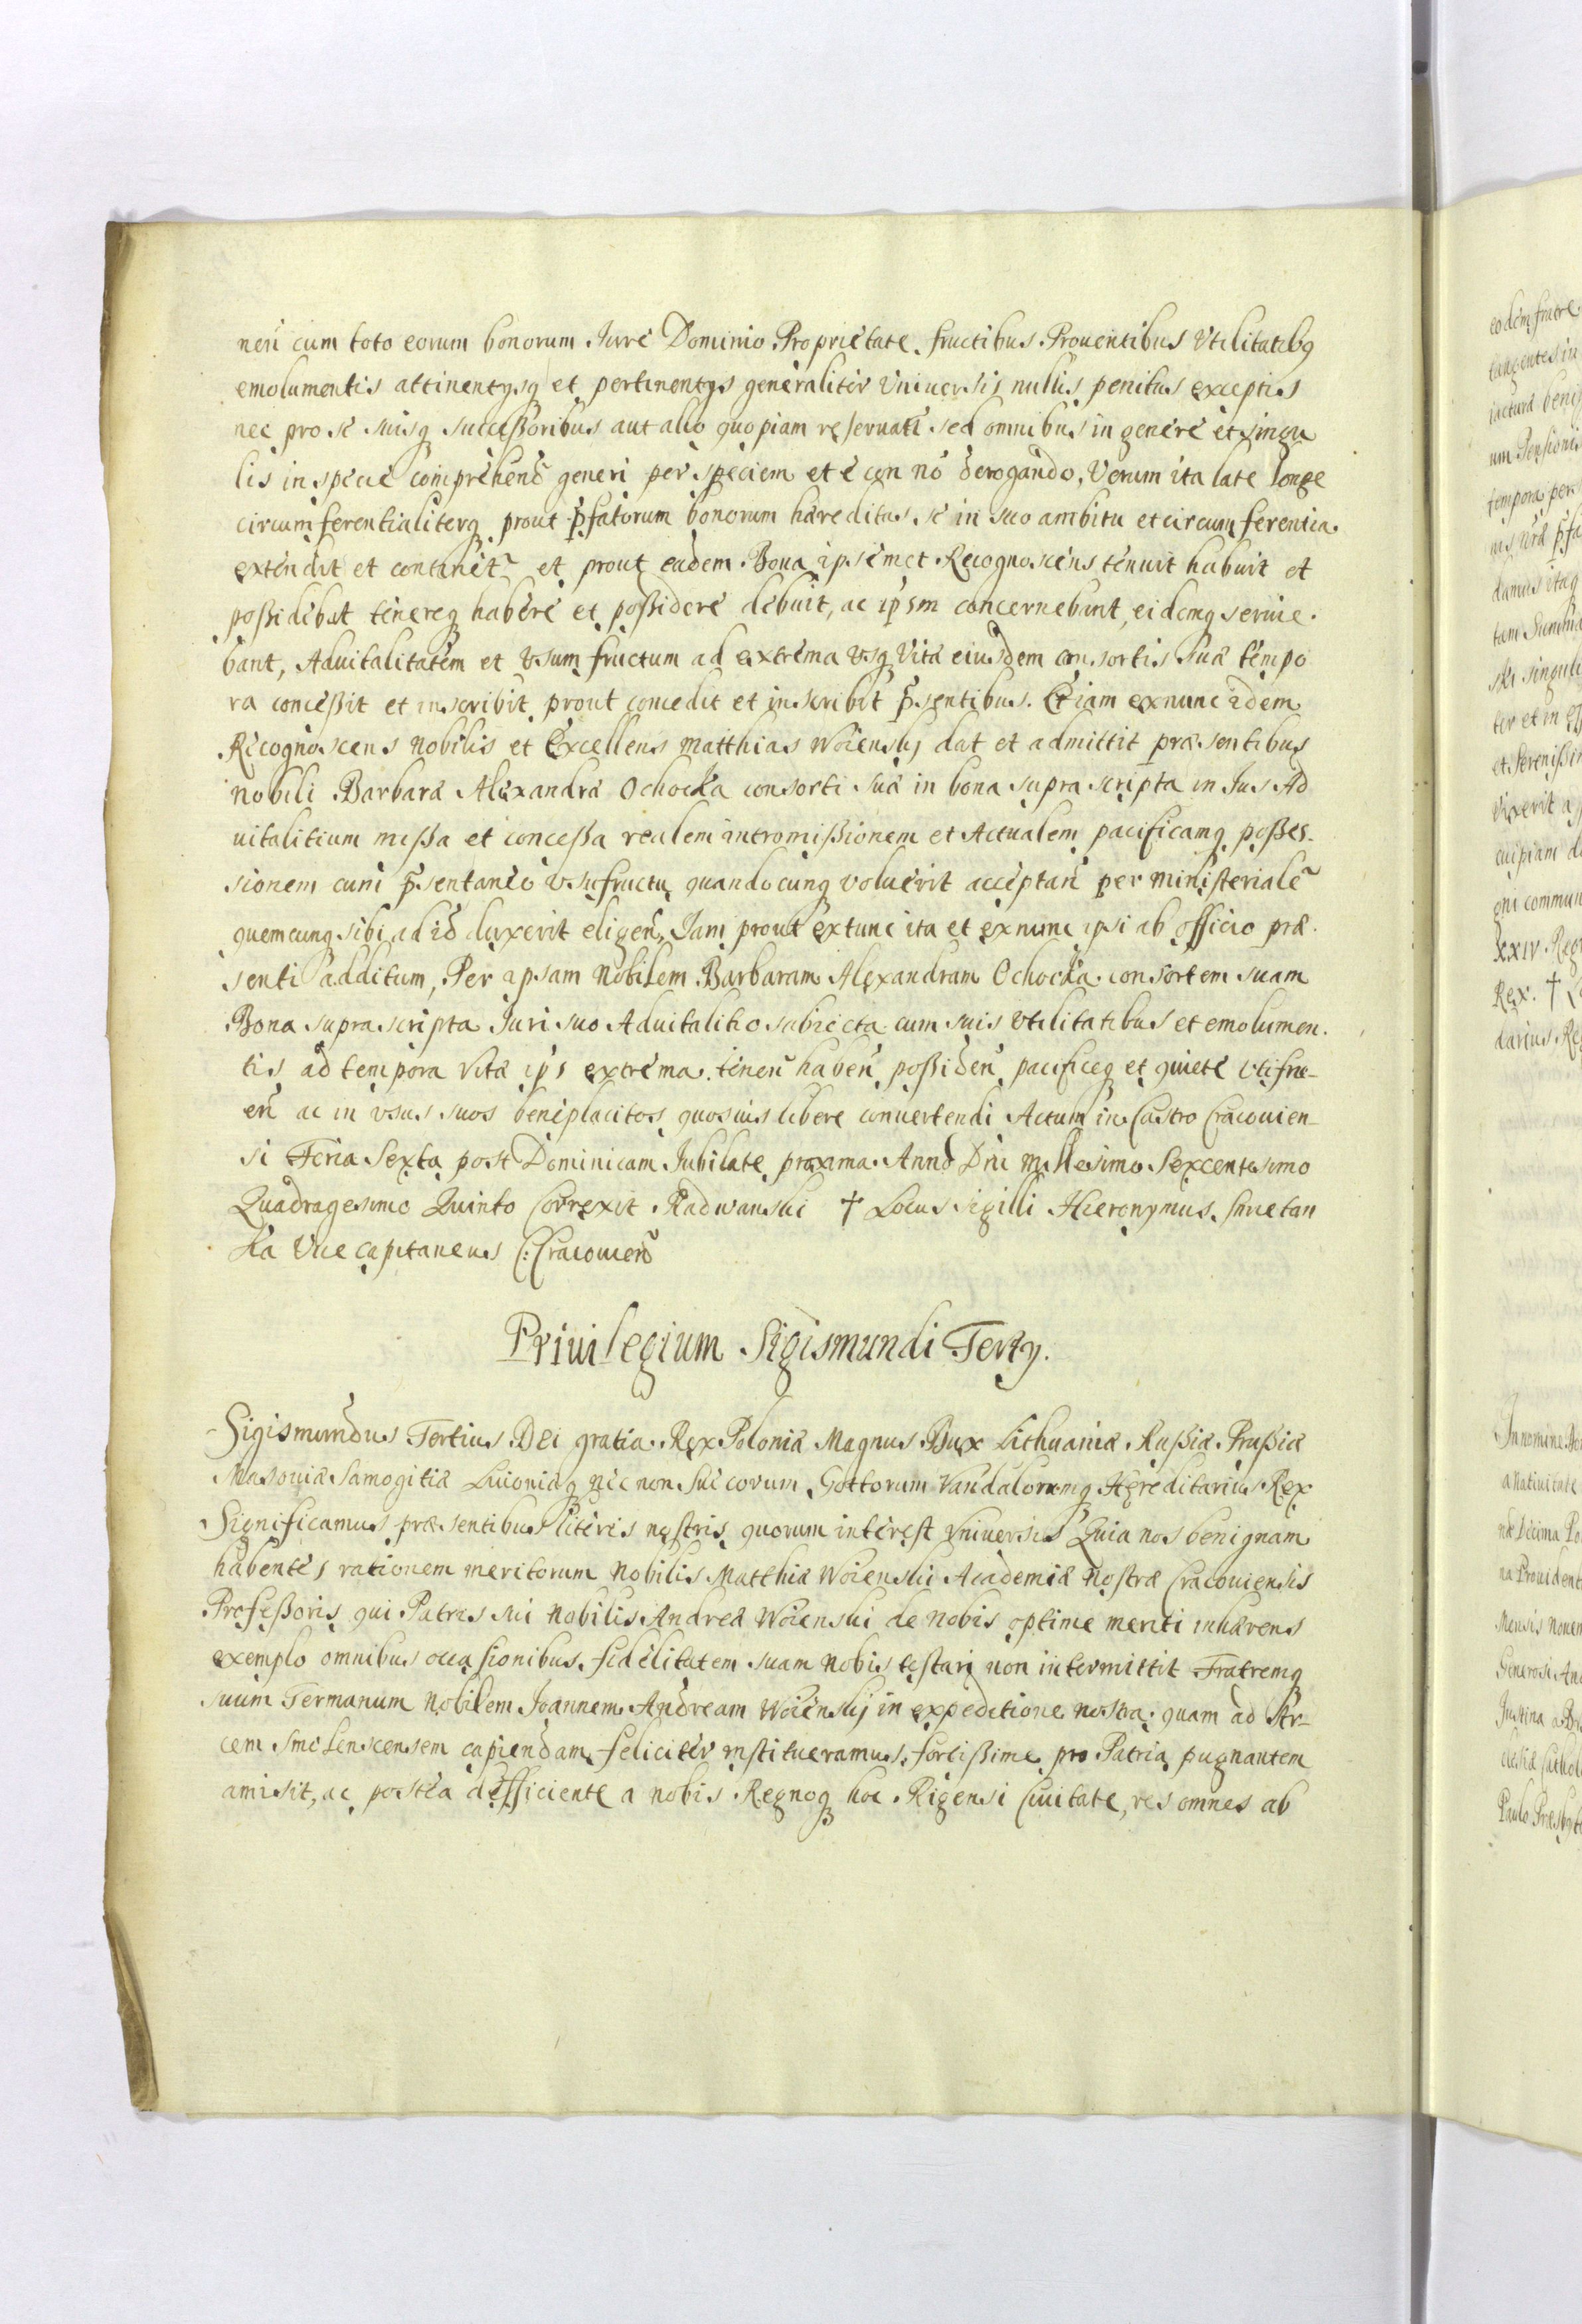 neñ cum toto eorum bonorum Iure Dominio Proprietate fructibus Prouentibus Vtilitatibq
emolumentis attinentysq et pertinentys generaliter Vniuersis nullis penitus exceptis
nec pro se suisq successoribus aut alio quopiam reseruatt sed omnibus in genere et singu
lis in specie comprehend generi per speciem et e con nō derogando, Verum ita late longe
circumferentialiterq prout p̄fatorum bonorum hæreditas se in suo ambitu et circumferentia
extendit et continet~ et prout eadem Bona ipsemet Recognoscens tenuit habuit et
possidebat tenereq habere et possidere debuit, ac ipsm concernebant, eidemq seruie.
bant, Aduitalitatem et Vsumfructum ad extrema vsq Vitæ eiusdem consortis suæ tempo
ra concessit et inscribit prout concedit et inscribit p̄sentibus. Etiam exnunc idem
Recognoscens Nobilis et Excellens Matthias Woienskj dat et admittit præsentibus
Nobili Barbaræ Alexandræ Ochocka consorti suæ in bona suprascripta in Jus Ad
uitalitium missa et concessa realem intromissionem et Actualem pacificamq posses-
sionem cum p̄sentaneo vsufructu quandocunq voluerit acceptañ per ministerialē
quemcunq sibi ad id duxerit eligeñ, Iam prout extunc ita et exnunc ipsi ab officio præ.
senti additum, Per ipsam Nobilem Barbaram Alexandram Ochocka consortem suam
Bona suprascripta Iuri suo Aduitalitio subiecta cum suis vtilitatibus et emolumen.
tis ad tempora Vitæ ips extrema teneñ habeñ possideñ pacificeq et quiete vtifru-
eñ ac in vsus suos beneplacitos quosuis libere conuertendi Actum in Castro Cracouien-
si Feria Sexta post Dominicam Iubilate proxima Anno Dni Millesimo Sexcentesimo
Quadragesimo Quinto Correxit Radwanski † Locus Sigilli Hieronymus Smetan
ka Vicecapitaneus C: Cracouieñ
Priuilegium Sigismundi Tertÿ.
Sigismundus Tertius Dei gratia Rex Poloniæ Magnus Dux Lithuaniæ Russiæ Prussiæ
Masouiæ Samogitiæ Liuoniæq nec non Suecorum Gottorum Vandalorumq Hæreditarius Rex
Significamus præsentibus literis nostris quorum interest Vniuersis Quia nos benignam
habentes rationem meritorum Nobilis Matthiæ Woienski Academiæ Nostræ Cracouiensis
Professoris qui Patris sui Nobilis Andreæ Woienski de Nobis optime meriti inhærens
exemplo omnibus occasionibus fidelitatem suam Nobis testari non intermittit Fratremq
suum Germanum Nobilem Joannem Andream Woienskj in expeditione nostra quam ad Ar-
cem Smolenscensem capiendam feliciter institueramus, fortissime pro Patria pugnantem
amisit, ac postea defficiente a nobis Regnoq hoc Rigensi Ciuitate, res omnes ab